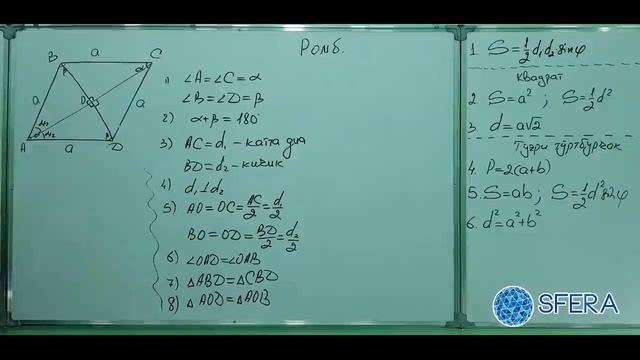 Ромб.
B a C
a a
O
A a D
1) ∠A=∠C=α
∠B=∠D=β
2) α+β=180°
3) AC=d₁ – катта диа
BD=d₂ – кичик
4) d₁⊥d₂
5) AO=OC=AC/2=d₁/2
BO=OD=BD/2=d₂/2
6) ∠OAD=∠OAB
7) △ABD=△CBD
8) △AOD=△AOB
1. S=1/2 d₁d₂·sinφ
Квадрат
2. S=a² ; S=1/2 d²
3. d=a√2
Тугри туртбурчак
4. P=2(a+b)
5. S=ab ; S=1/2 d² sinφ
6. d²=a²+b²
SFERA